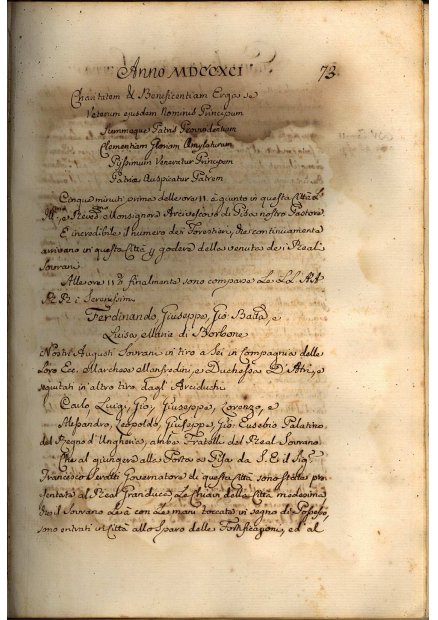 Anno MDCCXCI 73.
Charitatem & Beneficentiam Erga se
Veterum ejusdem Nominis Principum
Summaque Patris Providentiam
Clementiam Gloriam Amplaturum
Piissimum Veneratur Principem
Patriae Auspicatur Patrem
Cinque minuti prima delle ore 11. è giunto in questa Città
e Rever. Monsignore Arcivescovo di Pisa nostro Pastore
È incredibile il numero dei Forestieri, che continuamente
arrivano in questa Città p. godere della venuta dei Reali
Sovrani
Alle ore 11. finalmente sono comparse Le LL. AA.
RR. i Serenissimi
Ferdinando, Giuseppe, Gio. Batta., e
Luisa Maria di Borbone
Nostri Augusti Sovrani in tiro a Sei in Compagnia delle
Loro Ecc. Marchese Manfredini, e Duchessa D'Atri, e
seguitati in altro tiro dagl'Arciduchi
Carlo Luigi, Gio, Giuseppe, Lorenzo, e
Alesandro, Leopoldo, Giuseppe, Gio. Eusebio Palatino
del Regno d'Ungheria, ambi Fratelli del Real Sovrano
Che al giungere alla Porta a Pisa da S. E. il Sig.
Francesco Seratti Governatore di questa Città sono state pre
sentate al Real Granduca Le Chiavi della Città medesima
il Sovrano Le à con Le mani toccate in segno di Possesso,
sono entrati in Città allo Sparo delle Fortificazioni, ed al